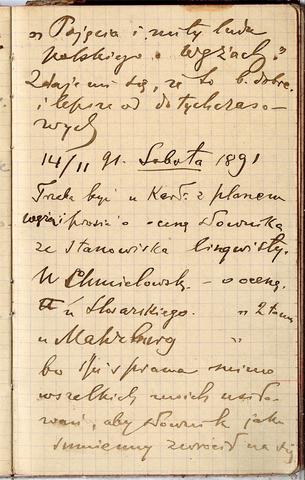 „Pojęcia i mity ludu
polskiego o wężach."
Zdaje mi się, że to b. dobre
i lepsze od dotychczaso-
wych
14/II 91. Sobota 1891
Trzeba być u Karł. z planem
i prosić o ocenę słownika
ze stanowiska lingwisty.
U Chmielowsk. – o ocenę.
u Ślósarskiego. „ 2 tomu
u Mahrburg „
bo
wszelkich moich usiło-
wań, aby słownik jako
sumienny zwrócić na się